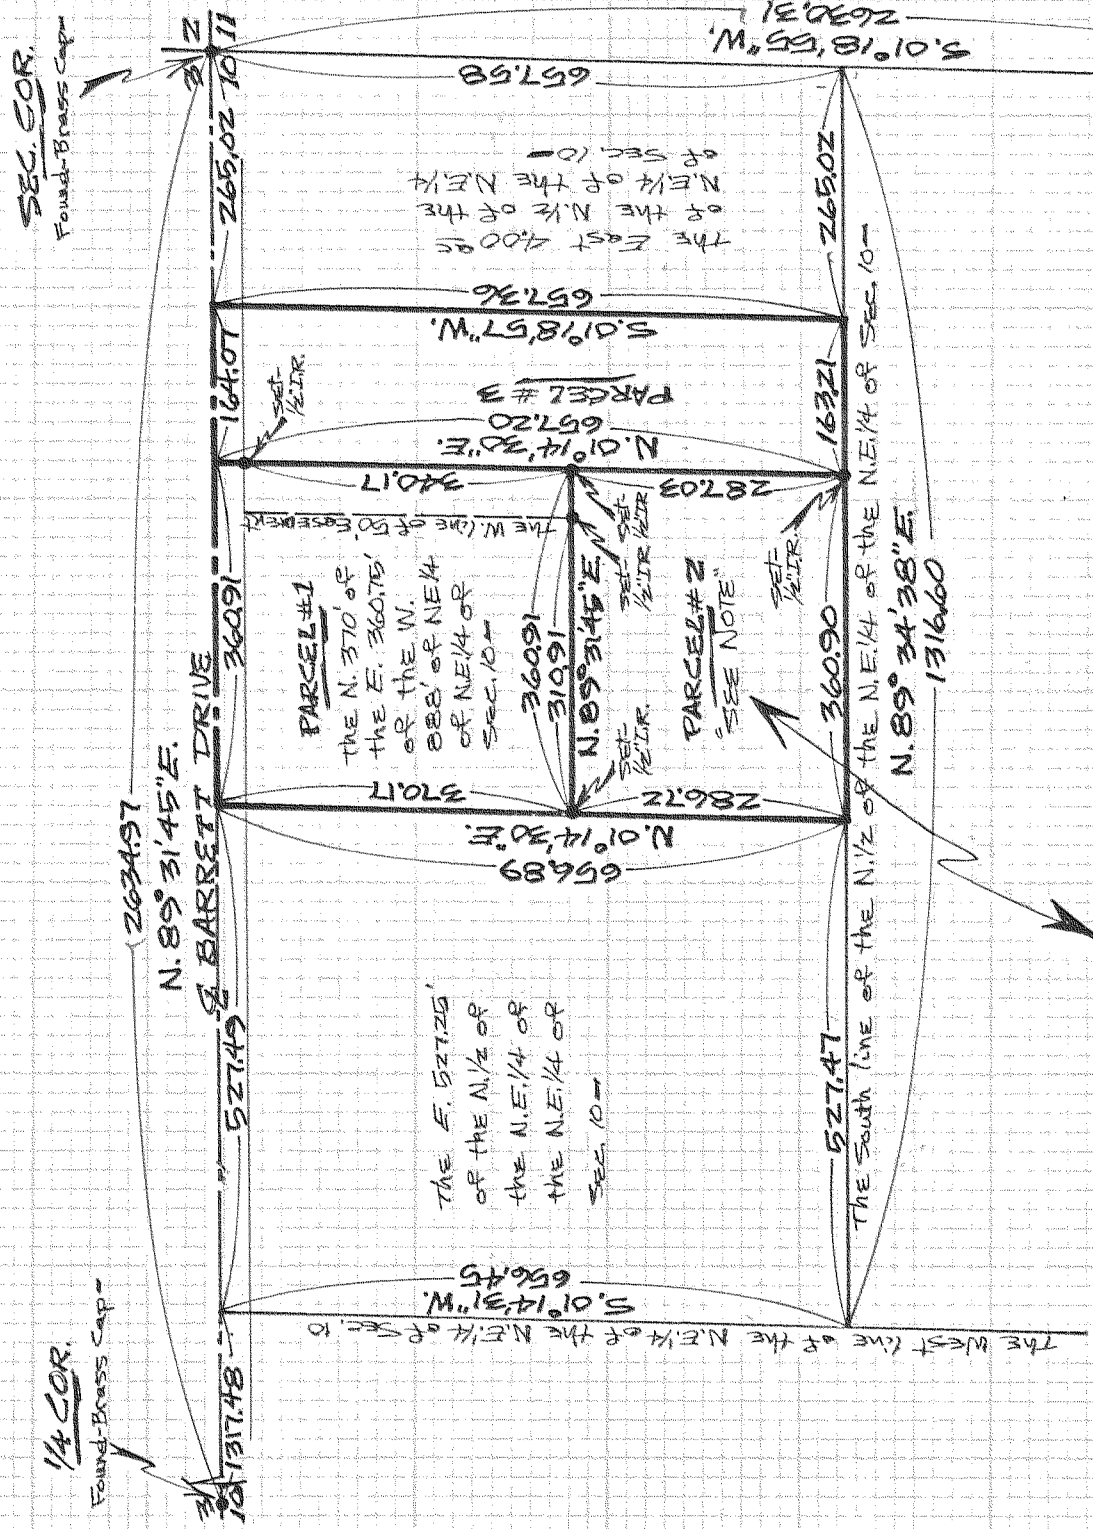 SEC. COR.
Found-Brass Cap-
3 2
10 11
1/4 COR.
Found-Brass Cap-
3
10
2634.97
N. 89° 31' 45" E.
℄ BARRETT DRIVE
1317.48
527.49
360.91
164.07
265.02
S. 01° 18' 55" W.
2630.31
657.58
The East 4.00 ac
of the N.1/2 of the
N.E.1/4 of the N.E.1/4
of Sec. 10-
657.36
S. 01° 18' 57" W.
PARCEL # 3
657.20
N. 01° 14' 30" E.
340.17
287.03
Set-
1/2" I.R.
The W. line of 50' Easement
PARCEL #1
the N. 370' of
the E. 360.75'
of the W.
888' of NE1/4
of N.E.1/4 of
Sec. 10-
360.91
310.91
N. 89° 31' 45" E.
Set-
1/2" I.R.
Set-
1/2" I.R.
Set-
1/2" I.R.
PARCEL #2
"SEE NOTE"
Set-
1/2" I.R.
370.17
286.72
N. 01° 14' 30" E.
656.89
The E. 527.25'
of the N.1/2 of
the N.E.1/4 of
the N.E.1/4 of
Sec. 10-
656.45
S. 01° 14' 31" W.
The West line of the N.E.1/4 of the N.E.1/4 of Sec. 10
527.47
360.90
163.21
265.02
The South line of the N.1/2 of the N.E.1/4 of the N.E.1/4 of Sec. 10-
N. 89° 34' 38" E.
1316.60